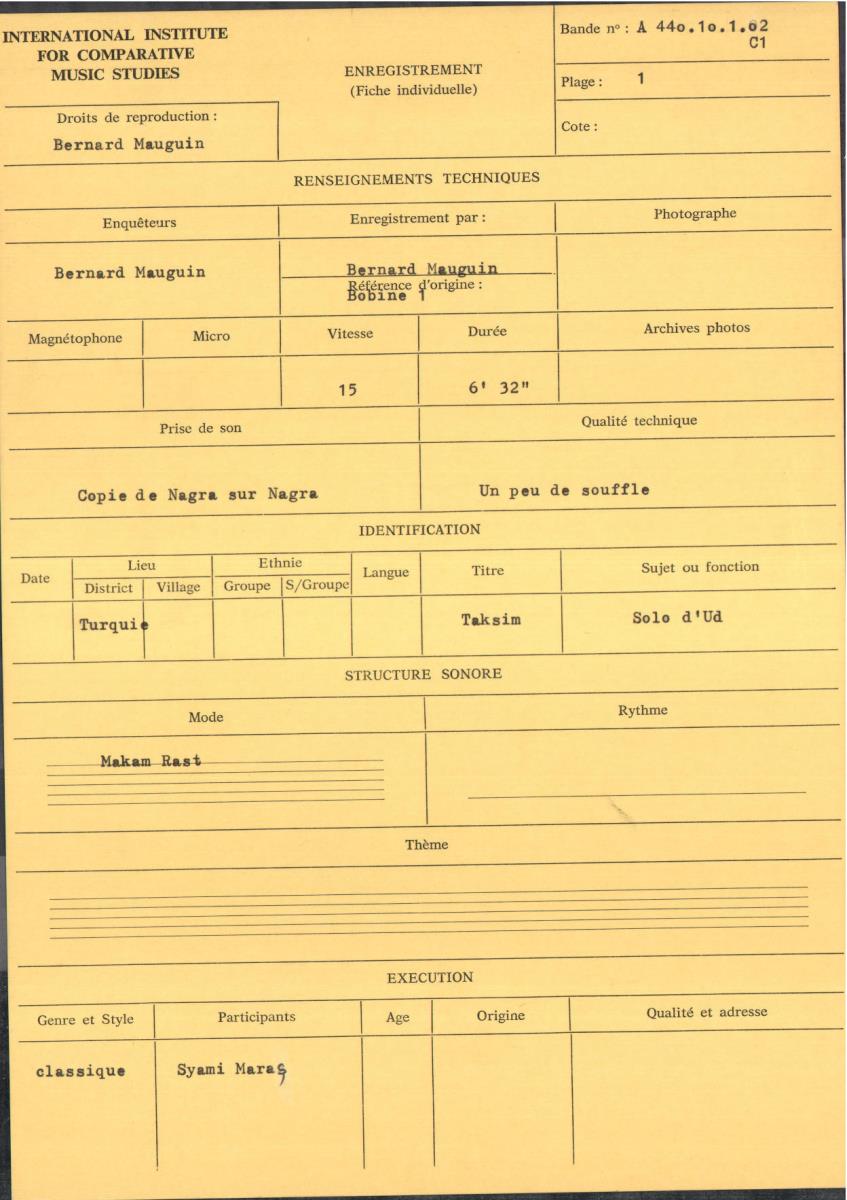 INTERNATIONAL INSTITUTE
FOR COMPARATIVE
MUSIC STUDIES
ENREGISTREMENT
(Fiche individuelle)
Bande nº : A 44o.1o.1.o2
C1
Plage : 1
Cote :
Droits de reproduction :
Bernard Mauguin
RENSEIGNEMENTS TECHNIQUES
Enquêteurs
Enregistrement par :
Photographe
Bernard Mauguin
Bernard Mauguin
Référence d'origine :
Bobine 1
Magnétophone
Micro
Vitesse
Durée
Archives photos
15
6' 32"
Prise de son
Qualité technique
Copie de Nagra sur Nagra
Un peu de souffle
IDENTIFICATION
Date
Lieu
Ethnie
Langue
Titre
Sujet ou fonction
District
Village
Groupe
S/Groupe
Turquie
Taksim
Solo d'Ud
STRUCTURE SONORE
Mode
Rythme
Makam Rast
Thème
EXECUTION
Genre et Style
Participants
Age
Origine
Qualité et adresse
classique
Syami Maraş